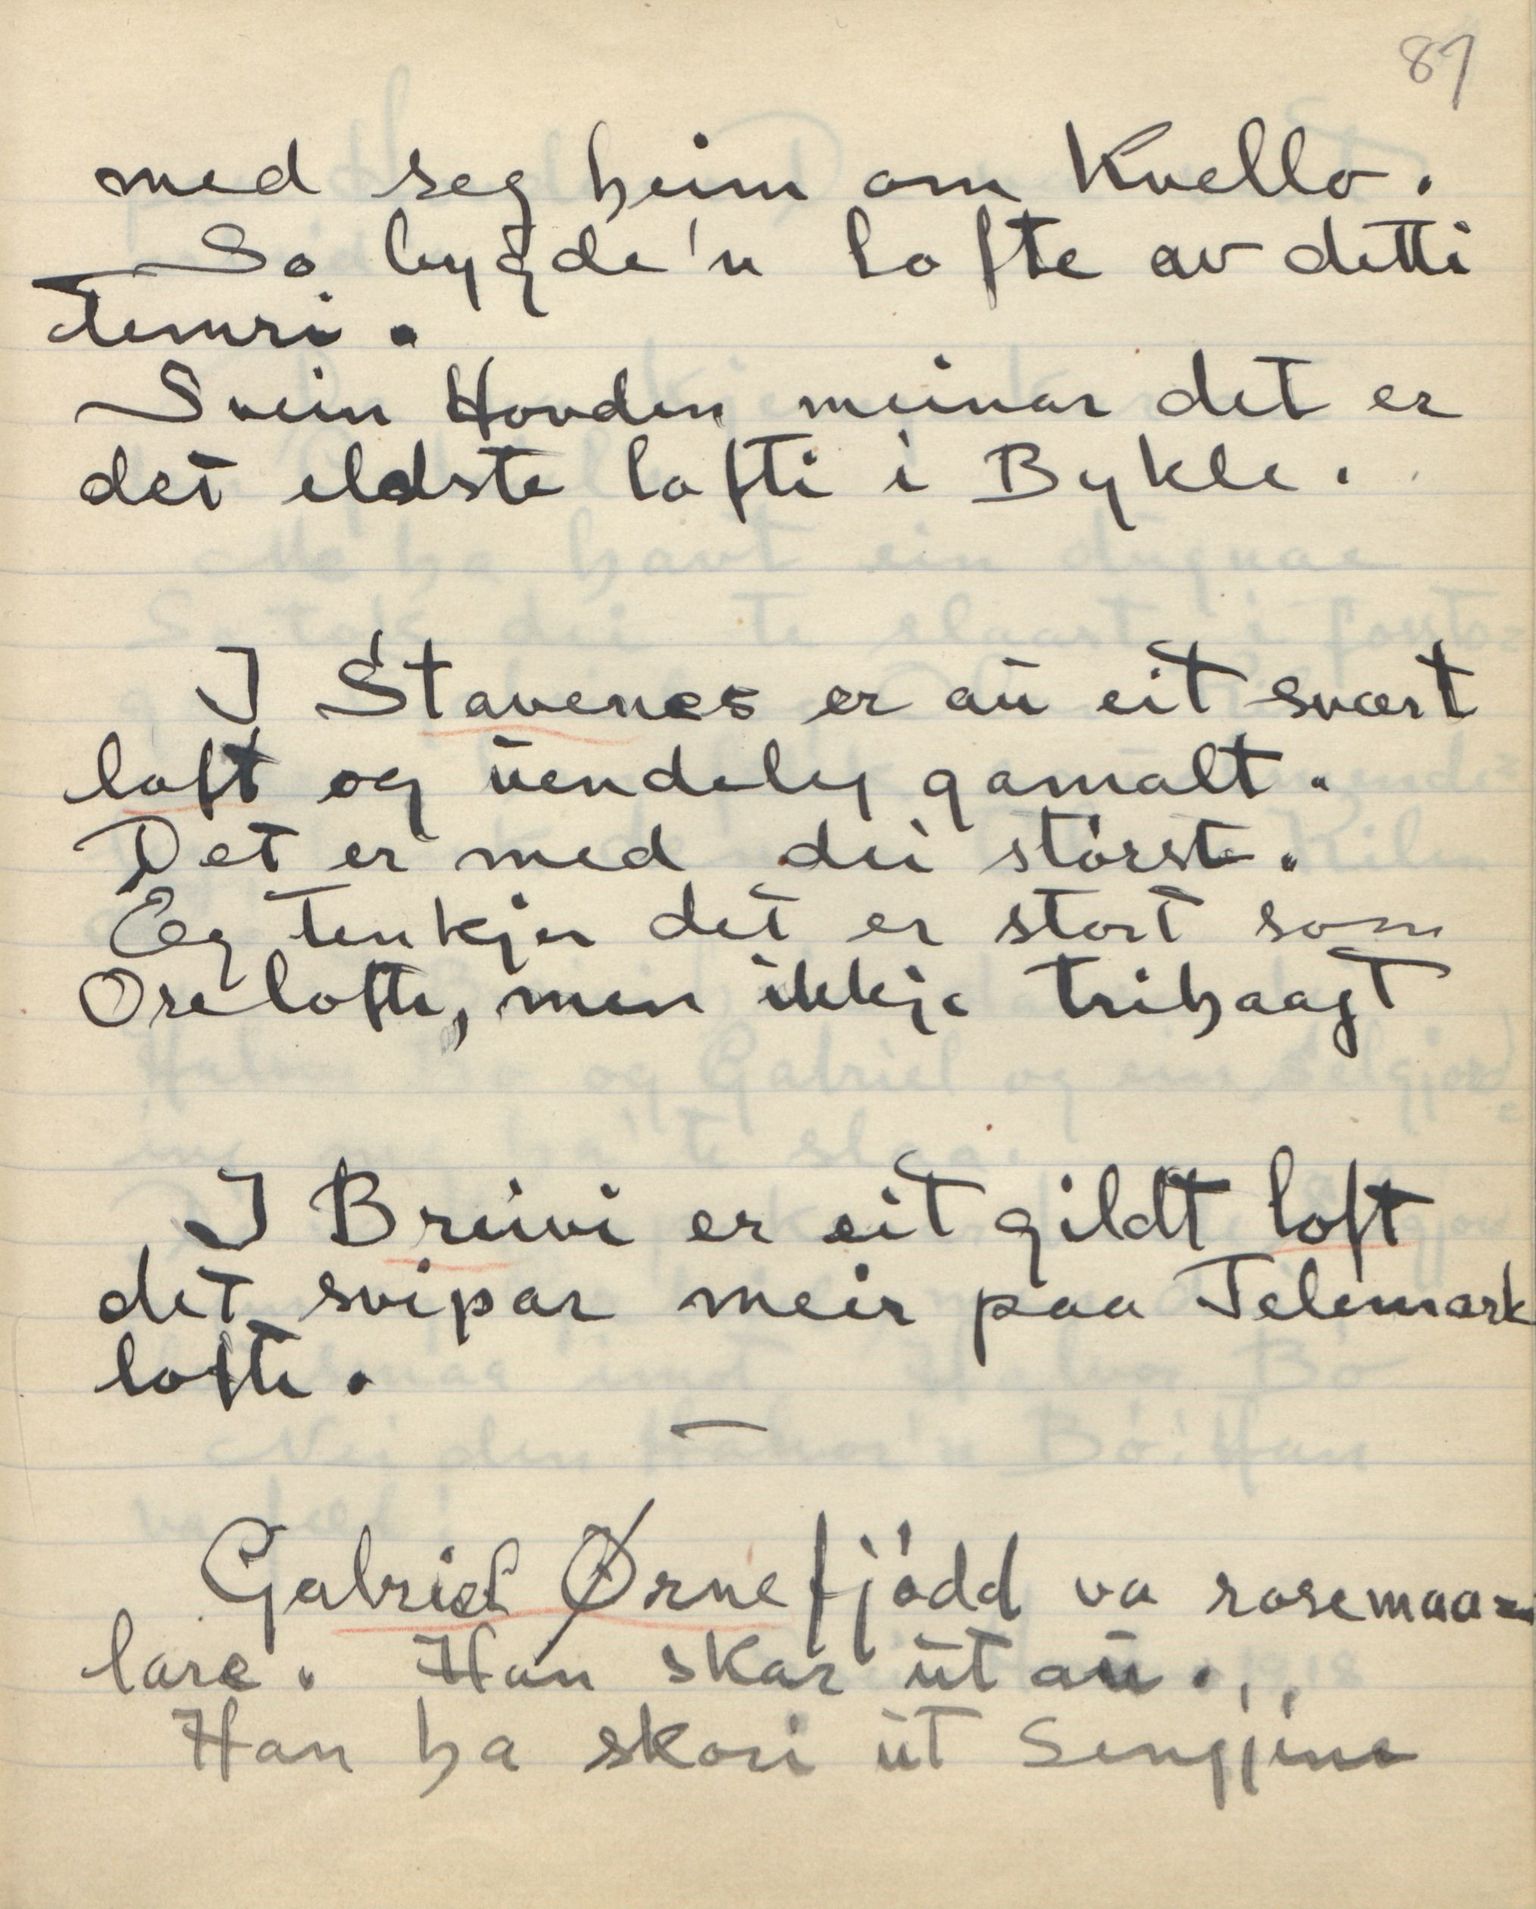 87
med seg heim om Kvello.
So bygde'n lofte av detti
temri.
Svein Hovden meinar det er
det eldste lofti i Bykle.
I Stavenes er aū eit svært
loft og ūendeleg gamalt.
Det er med dei störste.
Eg tenkjer det er stort som
Oselofte, men ikkje trihøagt
I Breivi er eit gildt loft
det svipar meir paa Telemark
lofti.
—
Gabriel Ørnefjödd va rosemaa=
lare. Han skar ūt aū.
Han ha skori ūt Sengjine